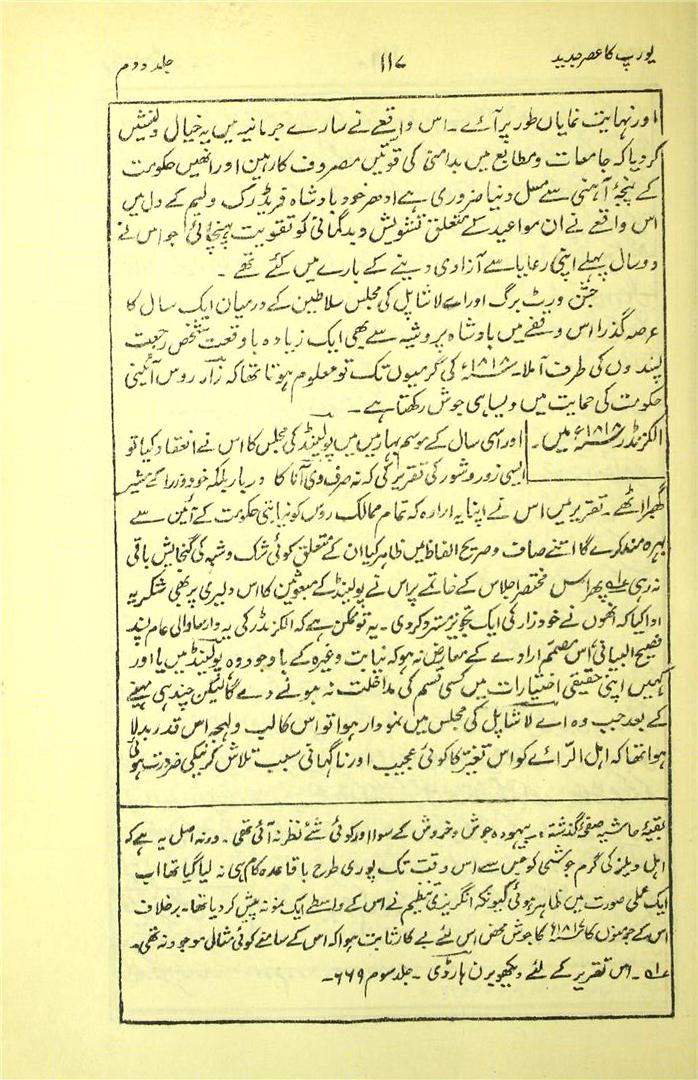 یورپ کا عصر جدید ۱۱۷ جلد دوم
اور نہایت نمایاں طور پر آئے ۔ اس واقعے نے سارے جرمانیہ میں یہ خیال دلنشیں
کر دیا کہ جامعات و مطابع میں بدامنی کی قوتیں مصروف کار ہیں اور انھیں حکومت
کے پنجۂ آہنی سے مسل دینا ضروری ہے ادھر خود بادشاہ فریڈرک ولیم کے دل میں
اس واقعے نے ان مواعید کے متعلق تشویش و بدگمانی کو تقویت پہنچائی جو اس نے
دو سال پہلے اپنی رعایا سے آزادی دینے کے بارے میں کئے تھے ۔
جشن ورٹ برگ اور اے لا شاپل کی مجلس سلاطین کے درمیان ایک سال کا
عرصہ گذرا اس وقفے میں بادشاہ پروشیہ سے بھی ایک زیادہ باوقعت شخص رجعت
پسندوں کی طرف آ ملا۔ ۱۸۱۸ء کی گرمیوں تک تو معلوم ہوتا تھا کہ زار روس آئینی
حکومت کی حمایت میں ویسا ہی جوش رکھتا ہے ۔
الکزنڈر ۱۸۱۸ء میں۔ اور اسی سال کے موسم بہار میں پولینڈ کی مجلس کا اس نے انعقاد کیا تو
ایسی زور و شور کی تقریر کی کہ نہ صرف وی آنا کا دربار بلکہ خود وزرا کے مشیر
گھبرا اٹھے ۔ تقریر میں اس نے اپنا یہ ارادہ کہ تمام ممالک روس کو نیابتی حکومت کے آئین سے
بہرہ مند کرے گا اتنے صاف و صریح الفاظ میں ظاہر کیا ان کے متعلق کوئی شک و شبہ کی گنجایش باقی
نہ رہی عہ پھر اس مختصر اجلاس کے خاتمے پر اس نے پولینڈ کے مبعوثین کا اس دلیری پر بھی شکریہ
ادا کیا کہ انھوں نے خود زار کی ایک تجویز مسترد کر دی ۔ یہ تو ممکن ہے کہ الکزنڈر کی یہ عام پسند
فصیح البیانی اس مصمم ارادے کے معارض نہ ہو کہ نیابت وغیرہ کے باوجود وہ پولینڈ میں یا اور
کہیں اپنی حقیقی اختیارات میں کسی قسم کی مداخلت نہ ہونے دے گا لیکن چند ہی مہینے
کے بعد جب وہ اے لا شاپل کی مجلس میں نمودار ہوا تو اس کا لب و لہجہ اس قدر بدلا
ہوا تھا کہ اہل الرائے کو اس تغیر کا کوئی عجیب اور ناگہانی سبب تلاش کرنیکی ضرورت ہوئی
بقیۂ حاشیہ صفحۂ گذشتہ ۔ بیہودہ جوش و خروش کے سوا اور کوئی شئے نظر نہ آئی تھی ۔ ورنہ اصل یہ ہے کہ
اہل ویلز کی گرم جوشی کو میں سے اس وقت تک پوری طرح باقاعدہ کام ہی نہ لیا گیا تھا اب
ایک عملی صورت میں ظاہر ہوئی کیونکہ انگریزی تنظیم نے اس کے واسطے ایک نمونہ پیش کر دیا تھا۔ برخلاف
اس کے جرمنوں کا ۱۸۱۷ء کا جوش محض اس لئے بے کار ثابت ہوا کہ اس کے سامنے کوئی مثالی موجود نہ تھی ۔
عہ ۔ اس تقریر کے لئے دیکھو برن ہارڈی ۔ جلد سوم ۶۶۹۔